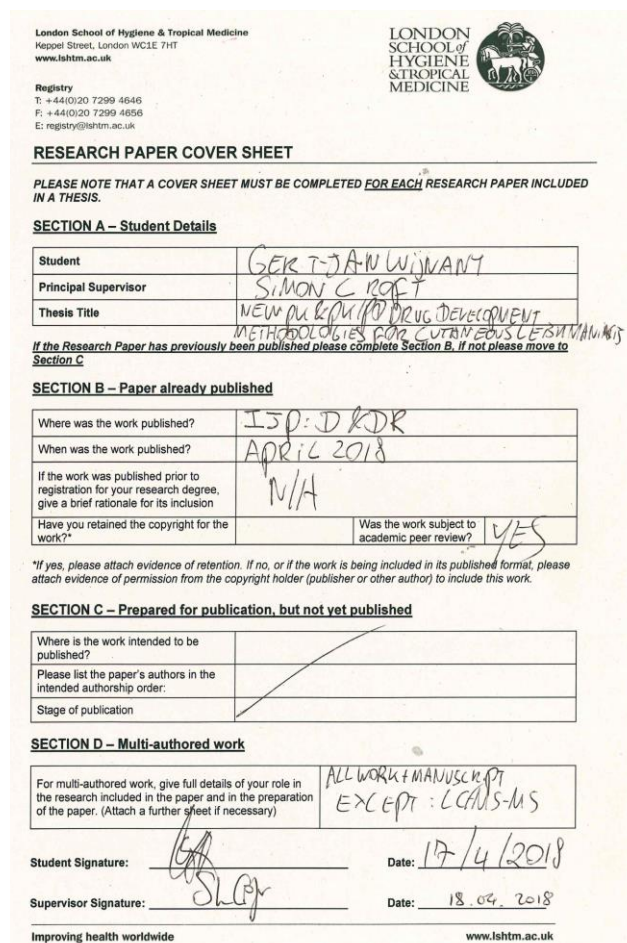 London School of Hygiene & Tropical Medicine
Keppel Street, London WC1E 7HT
www.lshtm.ac.uk
LONDON
SCHOOL of
HYGIENE
& TROPICAL
MEDICINE
Registry
T: +44(0)20 7299 4646
F: +44(0)20 7299 4656
E: registry@lshtm.ac.uk
RESEARCH PAPER COVER SHEET
PLEASE NOTE THAT A COVER SHEET MUST BE COMPLETED FOR EACH RESEARCH PAPER INCLUDED
IN A THESIS.
SECTION A – Student Details
Student GERT-JAN WIJNANT
Principal Supervisor SIMON CROFT
Thesis Title NEW PK & PK/PD DRUG DEVELOPMENT
METHODOLOGIES FOR CUTANEOUS LEISHMANIASIS
If the Research Paper has previously been published please complete Section B, if not please move to
Section C
SECTION B – Paper already published
Where was the work published? IJP: D&DR
When was the work published? APRIL 2018
If the work was published prior to
registration for your research degree,
give a brief rationale for its inclusion N/A
Have you retained the copyright for the
work?*
Was the work subject to
academic peer review? YES
*If yes, please attach evidence of retention. If no, or if the work is being included in its published format, please
attach evidence of permission from the copyright holder (publisher or other author) to include this work.
SECTION C – Prepared for publication, but not yet published
Where is the work intended to be
published?
Please list the paper's authors in the
intended authorship order:
Stage of publication
SECTION D – Multi-authored work
For multi-authored work, give full details of your role in
the research included in the paper and in the preparation
of the paper. (Attach a further sheet if necessary)
ALL WORK + MANUSCRIPT
EXCEPT: LC/MS-MS
Student Signature: Date: 17/4/2018
Supervisor Signature: Date: 18.04.2018
Improving health worldwide www.lshtm.ac.uk